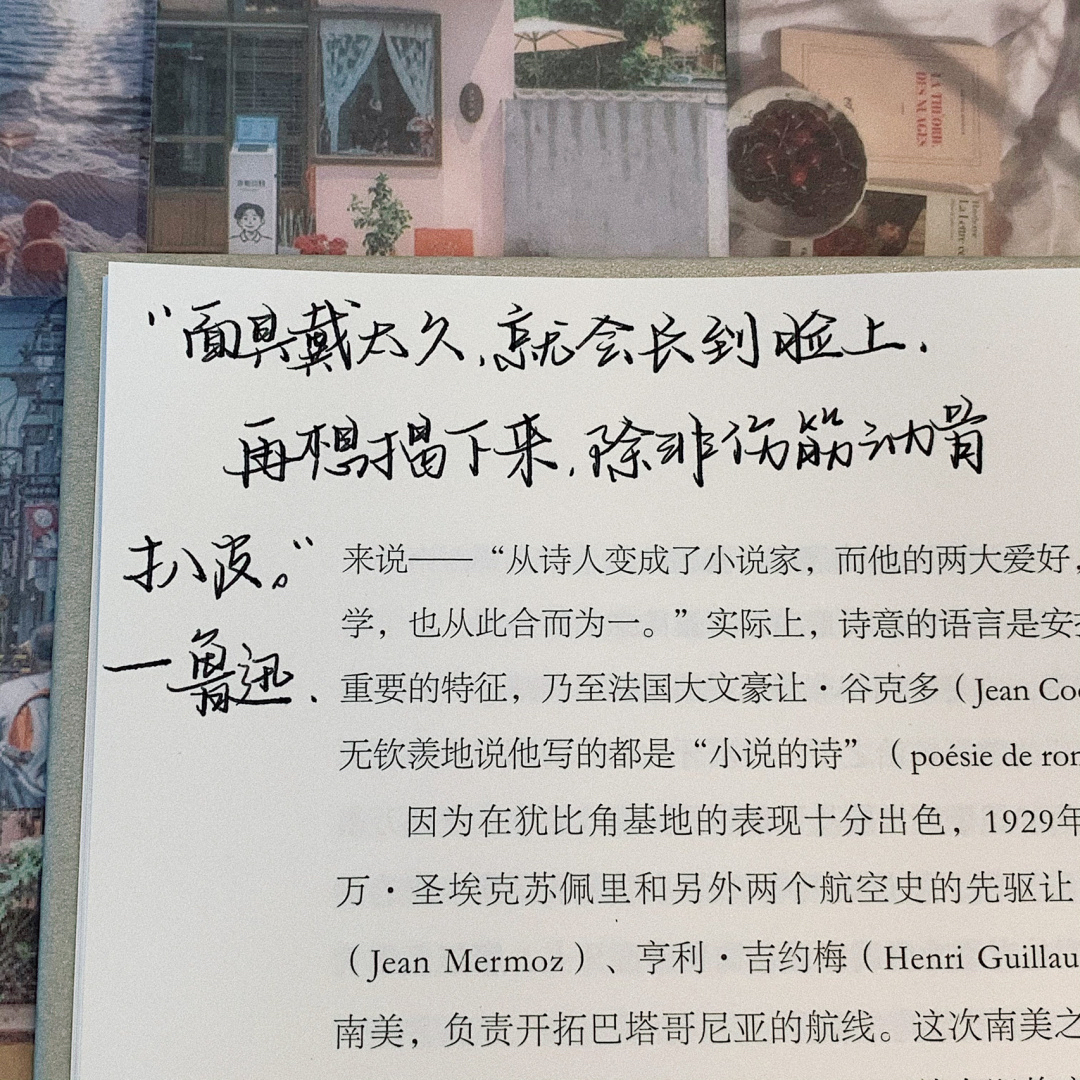 LA THÉORIE
DES NUAGES
La Lettre
“面具戴太久,就会长到脸上.
再想揭下来,除非伤筋动骨
扒皮。”
一鲁迅.
来说——“从诗人变成了小说家，而他的两大爱好，
学，也从此合而为一。”实际上，诗意的语言是安
重要的特征，乃至法国大文豪让·谷克多（Jean Coc
无钦羡地说他写的都是“小说的诗”（poésie de rom
因为在犹比角基地的表现十分出色，1929年
万·圣埃克苏佩里和另外两个航空史的先驱让
（Jean Mermoz）、亨利·吉约梅（Henri Guillau
南美，负责开拓巴塔哥尼亚的航线。这次南美之